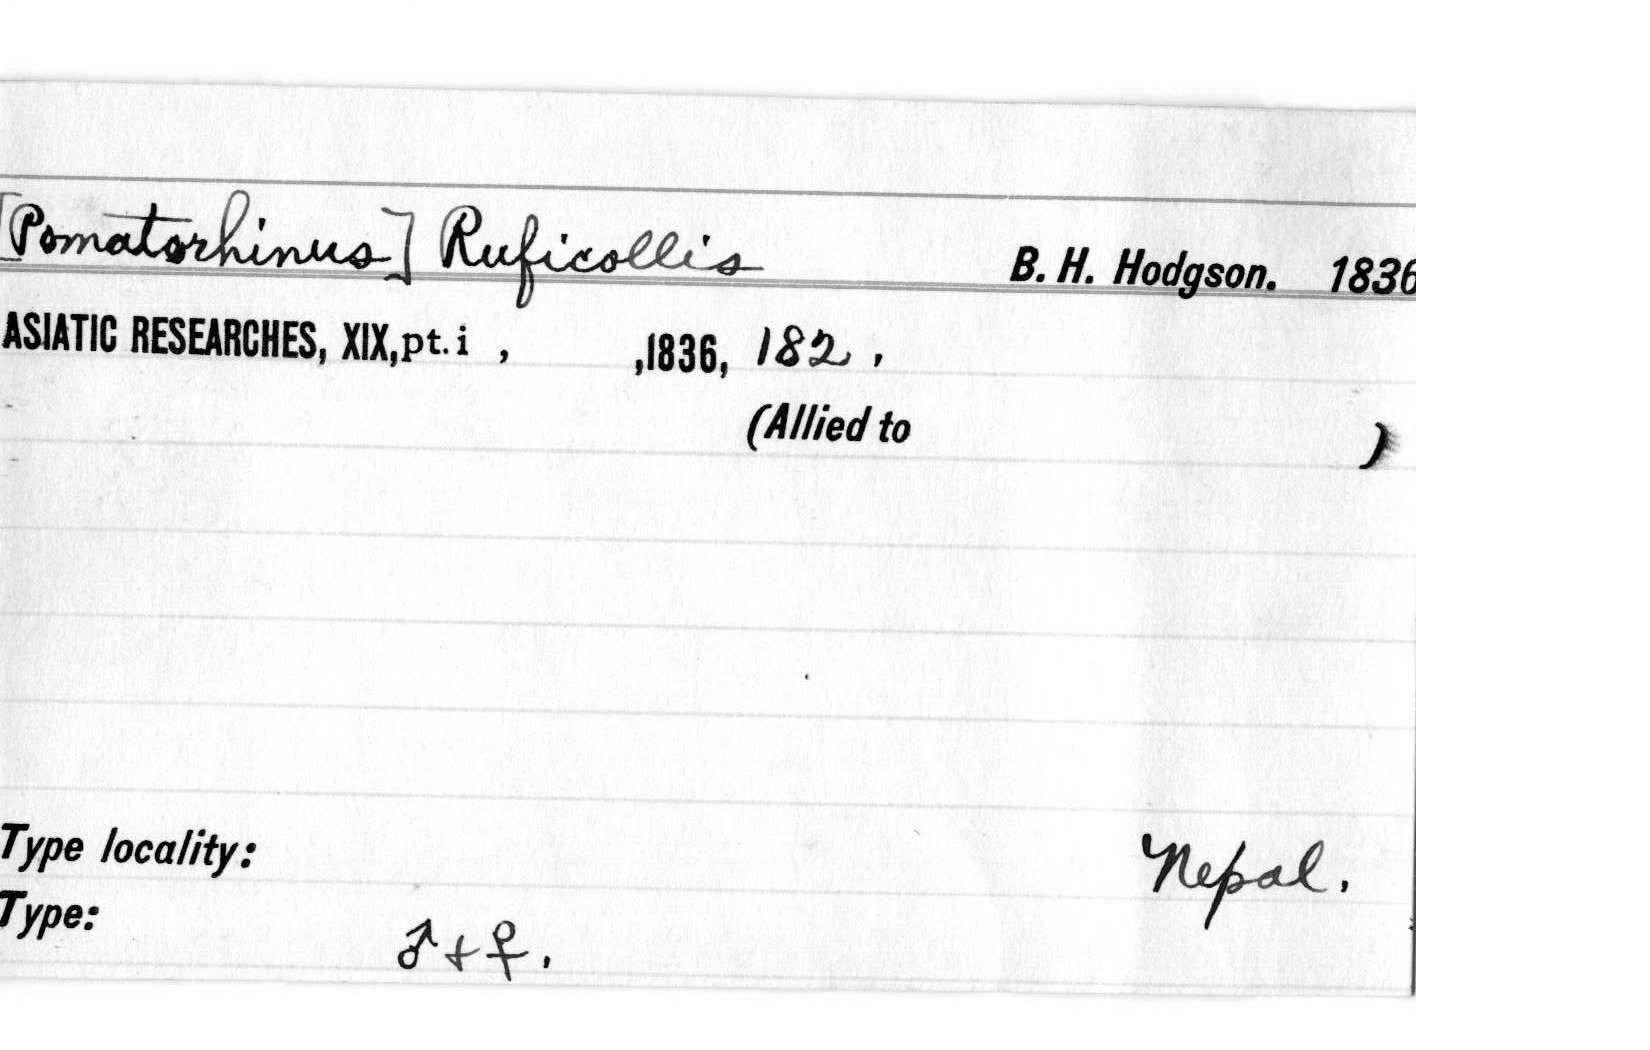 [Pomatorhinus] Ruficollis B. H. Hodgson. 1836
ASIATIC RESEARCHES, XIX, pt. i , ,1836, 182 ,
(Allied to )
Type locality: Nepal.
Type: ♂ + ♀.